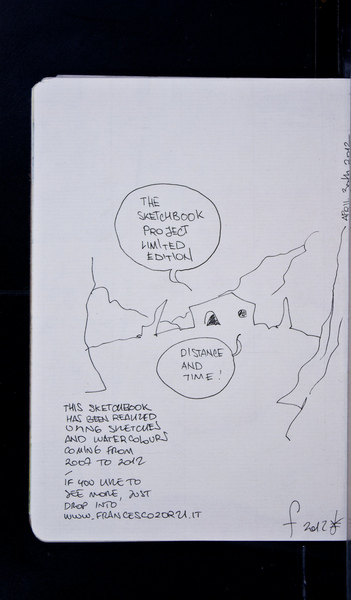 APRIL 30th 2012
THE
SKETCHBOOK
PROJECT
LIMITED
EDITION
DISTANCE
AND
TIME!
THIS SKETCHBOOK
HAS BEEN REALIZED
USING SKETCHES
AND WATERCOLOURS
COMING FROM
2007 TO 2012
IF YOU LIKE TO
SEE MORE, JUST
DROP INTO
WWW.FRANCESCOZORZI.IT
f 2012